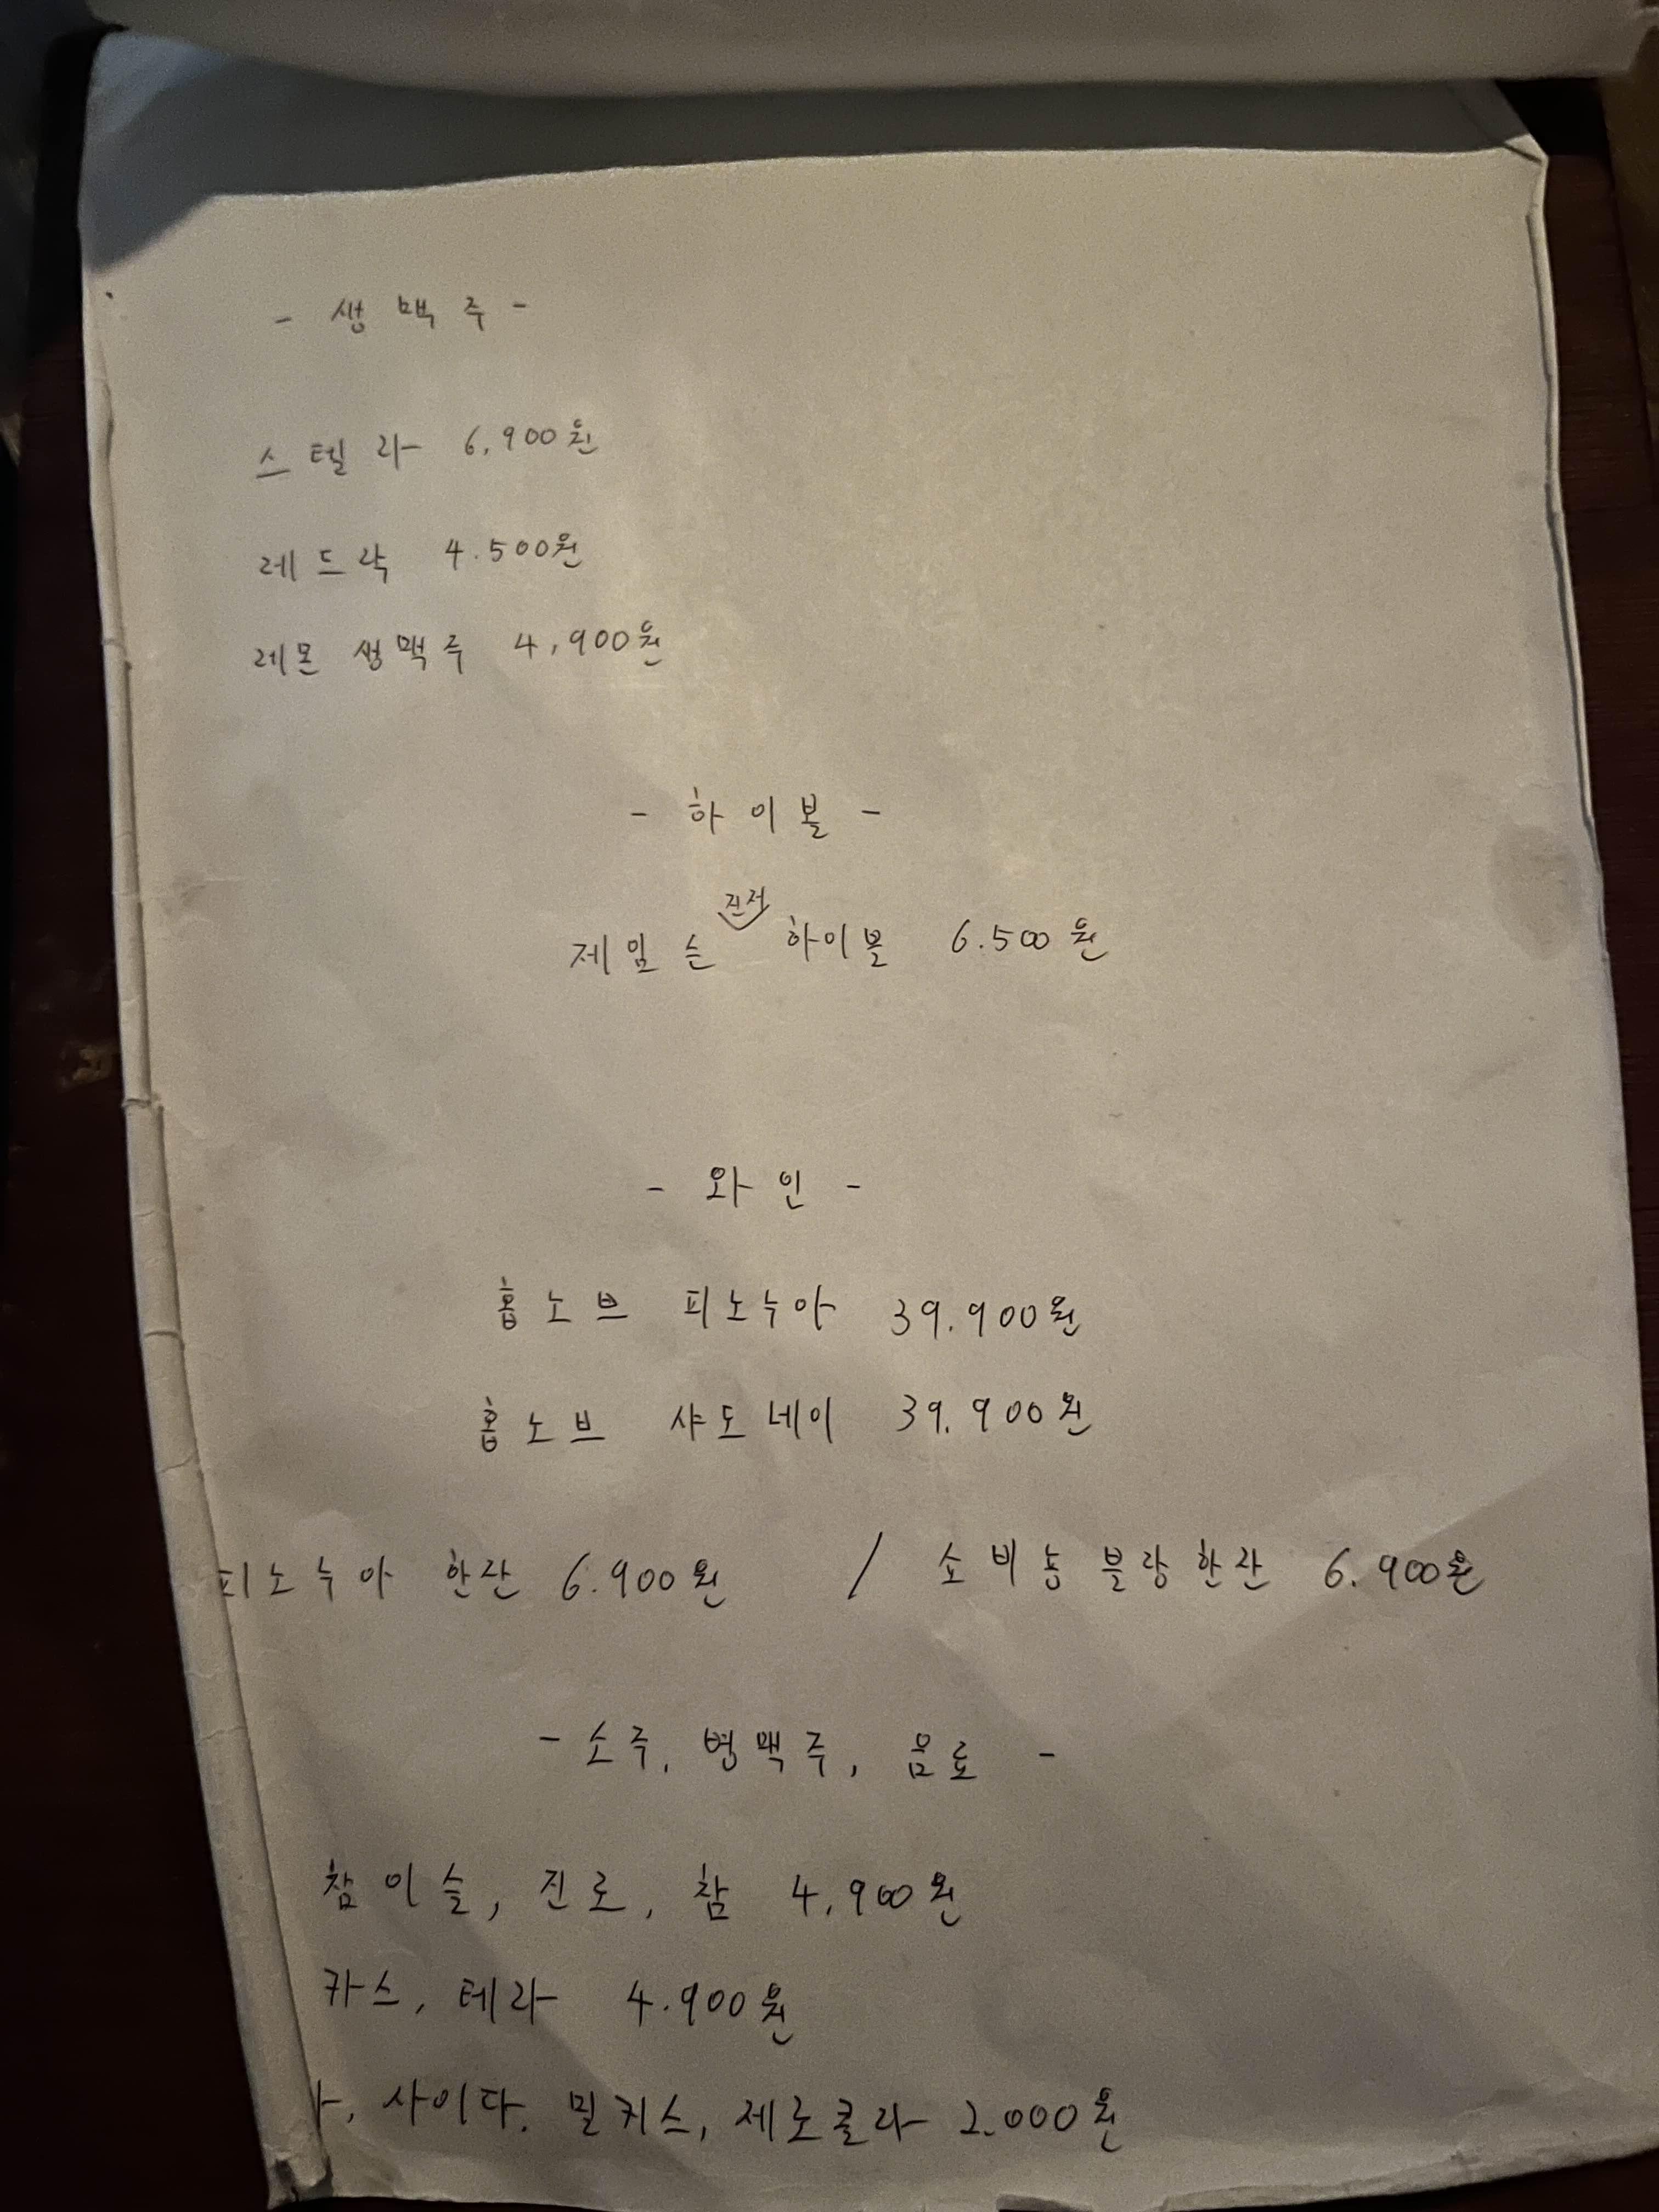 - 생맥주 -
스텔라 6,900원
레드락 4.500원
레몬 생맥주 4,900원
- 하이볼 -
진저
제임슨 하이볼 6.500원
- 와인 -
홉노브 피노누아 39.900원
홉노브 샤도네이 39.900원
피노누아 한잔 6.900원 / 소비뇽 블랑한잔 6.900원
- 소주, 병맥주, 음료 -
참이슬, 진로, 참 4,900원
카스, 테라 4.900원
사이다. 밀키스, 제로콜라 2.000원